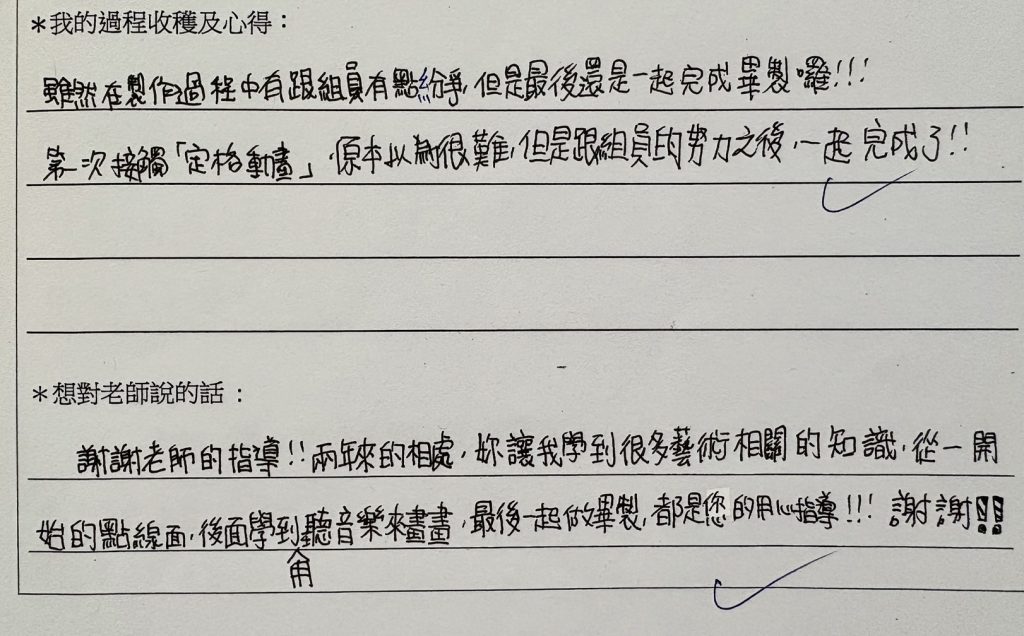 ＊我的過程收穫及心得：
雖然在製作過程中有跟組員有點紛爭，但是最後還是一起完成畢製囉!!!
第一次接觸「定格動畫」，原本以為很難，但是跟組員的努力之後，一起完成了!!
＊想對老師說的話：
謝謝老師的指導!!兩年來的相處，妳讓我學到很多藝術相關的知識，從一開
始的點線面，後面學到用聽音樂來畫畫，最後一起做畢製，都是您的用心指導!!! 謝謝!!